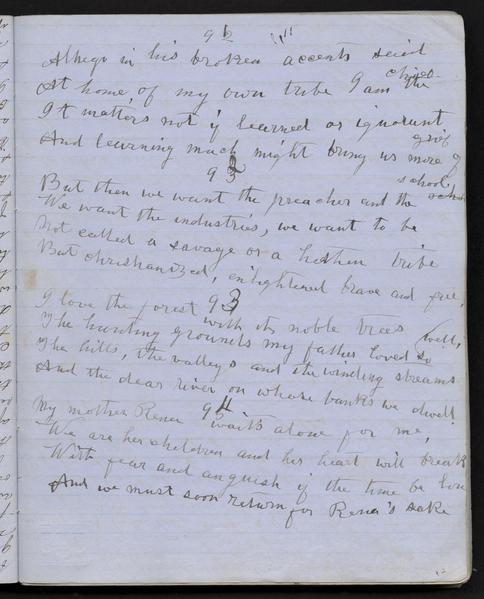 91
in his broken accents said
At home of my own tribe I am the chief
It matters not if learned or ignorant
And learning much might bring us more of grief
92
But then we want the preacher and the school,
We want the industries, we want to be
Not called a savage or a hethen tribe
But christianized, enlightened brave and free,
93
I love the forest with its noble trees
The hunting grounds my father loved so well,
The hills, the valleys and the winding streams
And the dear river on whose banks we dwell
94
My mother Rena waits alone for me,
We are her children and her heart will break
With fear and anguish if the time be long
And we must soon return for Rena's sake